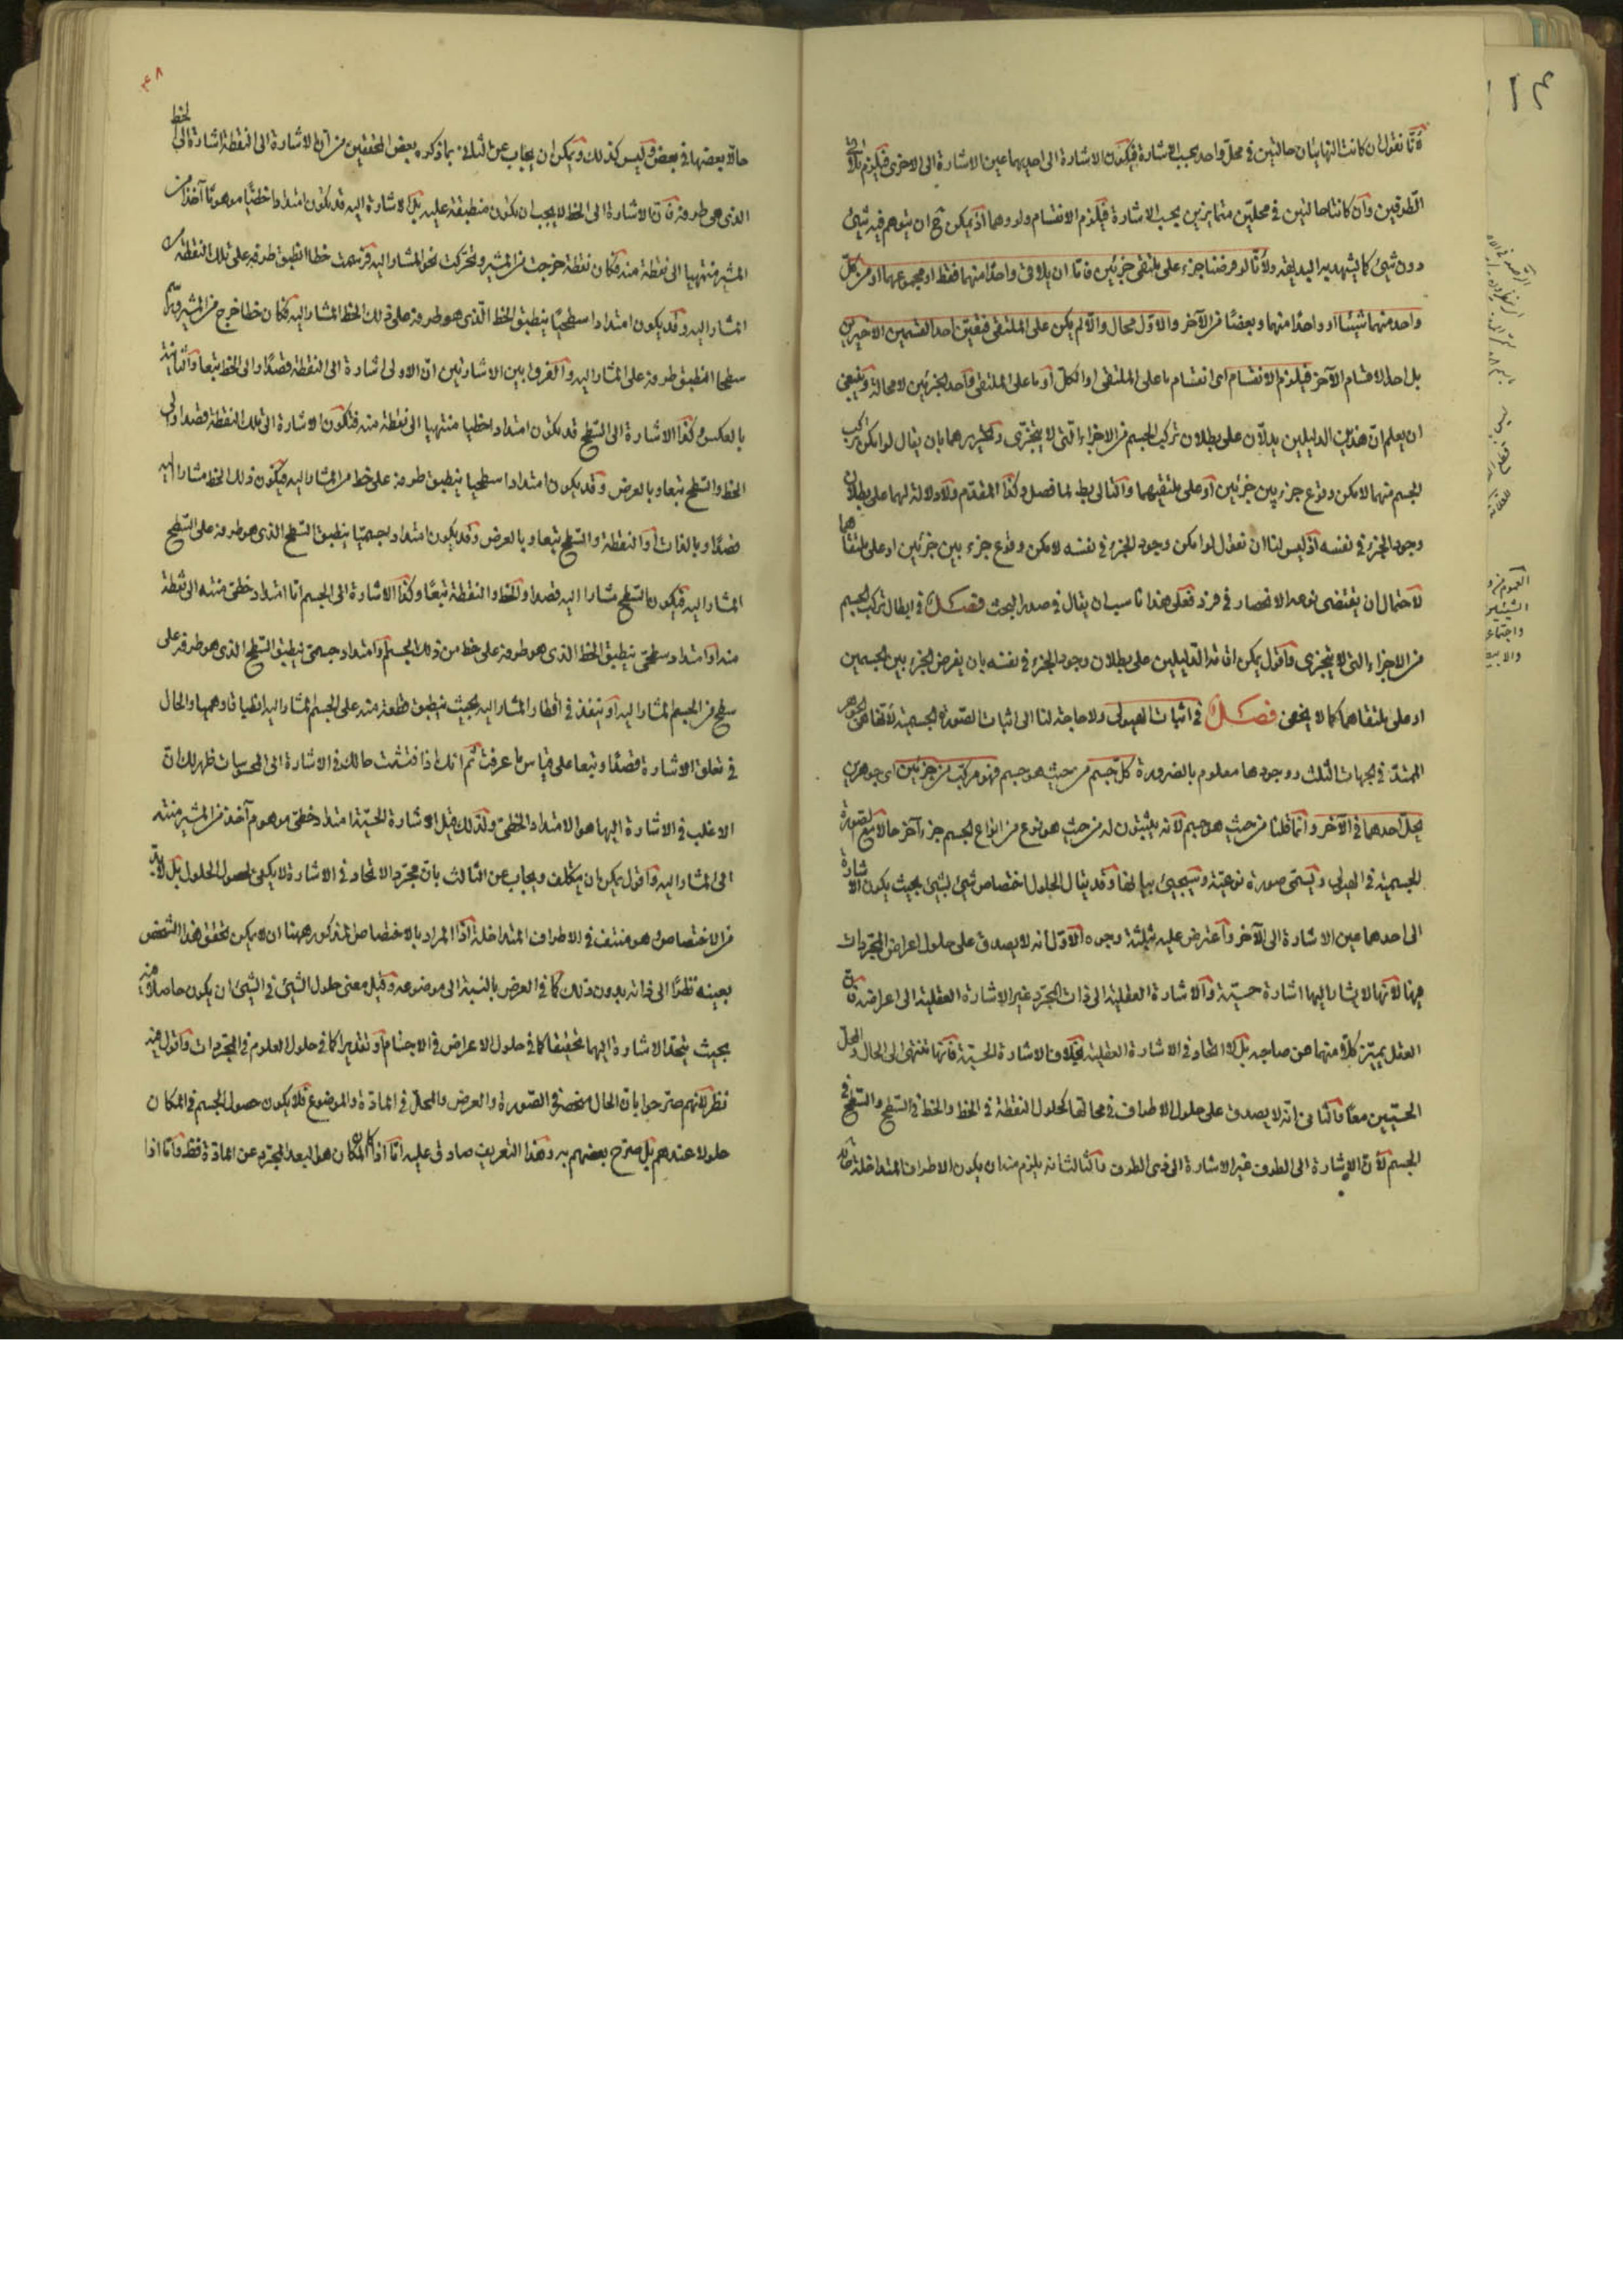 لانا نقول ان كانت النهايتان حالتين في محل واحد بحسب الاشارة فيكون الاشارة الى احديهما عين الاشارة الى الاخرى فيلزم تلاقي
الطرفين وان كانتا حالتين في محلين متمايزين بحسب الاشارة فيلزم الانقسام ولو وهما اذ يمكن ح ان يتوهم فيه شيئ
دون شيئ كما يشهد به البديهة ولانا لو فرضنا جزء على ملتقى جزئين فاما ان يلاقي واحدا منهما فقط او مجموعهما او من كل
واحد منهما شيئا او واحدا منهما وبعضا من الآخر والاول محال والا لم يكن على الملتقى فيتعين احد القسمين الاخيرين
بل احد الاقسام الآخر فيلزم الانقسام اى انقسام ما على الملتقى او الكل او ما على الملتقى واحد الجزئين لا محالة وينبغي
ان يعلم ان هذين الدليلين يدلان على بطلان تركيب الجسم من الاجزاء التي لا يتجزى وتحريرهما بان يقال لو امكن تركيب
الجسم منها لامكن وقوع جزء بين جزئين او على ملتقيهما والتالي بط لما فصل وكذا المقدم ولا دلالة لهما على بطلان
وجود الجزء في نفسه اذ ليس لنا ان نقول لو امكن وجود الجزء في نفسه لامكن وقوع جزء بين جزئين او على ملتقاهما
لاحتمال ان يقتضى نوعه الانحصار في فرد فعلى هذا ناسب ان يقال في صدر البحث فصل في ابطال تركب الجسم
من الاجزاء التي لا يتجزى واقول يمكن اقامة الدليلين على بطلان وجود الجزء في نفسه بان يفرض الجزء بين الجسمين
او على ملتقاهما كما لا يخفى فصل في اثبات الهيولى ولا حاجة لنا الى اثبات الصورة الجسمية لانها هي الجوهر
الممتد في الجهات الثلث ووجودها معلوم بالضرورة كل جسم من حيث هو جسم فهو مركب من جزئين اى جوهرين
يحل احدهما في الآخر وانما قلنا من حيث هو جسم لانه يثبتون له من حيث هو نوع من انواع الجسم جزء آخر حالا مع الصورة
الجسمية في الهيولى ويسمى صورة نوعية وسيجيئ بيانها وقد يقال الحلول اختصاص شيئ بشيئ بحيث يكون الاشارة
الى احدهما عين الاشارة الى الآخر واعترض عليه بثلثة وجوه الاول انه لا يصدق على حلول اعراض المجردات
فيها لانها لا يشار اليها اشارة حسية والاشارة العقلية الى ذات المجرد غير الاشارة العقلية الى اعراضه فان
العقل يميز كلا منهما عن صاحبه بل لا اتحاد في الاشارة العقلية بخلاف الاشارة الحسية فانها تنتهى الى الحال والمحل
الحسيين معا والثاني انه لا يصدق على حلول الاطراف في محالها كحلول النقطة في الخط والخط في السطح والسطح في
الجسم لان الاشارة الى الطرف غير الاشارة الى ذى الطرف والثالث انه يلزم منه ان يكون الاطراف المتداخلة
٤٨
حالا بعضها في بعض وليس كذلك ويمكن ان يجاب عن الثاني بما ذكره بعض المحققين من ان الاشارة الى النقطة اشارة الى الخط
الذى هو طرفه فان الاشارة الى الخط لا يجب ان يكون منطبقة عليه بل الاشارة اليه قد يكون امتدادا خطيا موهوما آخذا من
المشير منتهيا الى نقطة منه فكان نقطة خرجت من المشير وتحركت نحو المشار اليه فرسمت خطا انطبق طرفه على تلك النقطة من
المشار اليه وقد يكون امتدادا سطحيا ينطبق الخط الذى هو طرفه على ذلك الخط المشار اليه فكان خطا خرج من المشير فرسم
سطحا انطبق طرفه على المشار اليه والفرق بين الاشارتين ان الاولى اشارة الى النقطة قصدا والى الخط تبعا والثانية
بالعكس وكذا الاشارة الى السطح قد يكون امتدادا خطيا منتهيا الى نقطة منه فتكون الاشارة الى تلك النقطة قصدا والى
الخط والسطح تبعا وبالعرض وقد يكون امتدادا سطحيا ينطبق طرفه على خط من المشار اليه فيكون ذلك الخط مشارا اليه
قصدا وبالذات والنقطة والسطح تبعا وبالعرض وقد يكون امتدادا جسميا ينطبق السطح الذى هو طرفه على السطح
المشار اليه فيكون السطح مشارا اليه قصدا والخط والنقطة تبعا وكذا الاشارة الى الجسم اما امتداد خطى منته الى نقطة
منه او امتداد سطحى ينطبق الخط الذى هو طرفه على خط من ذلك الجسم او امتداد جسمى ينطبق السطح الذى هو طرفه على
سطح من الجسم المشار اليه او ينفذ في اقطار المشار اليه بحيث ينطبق قطعة منه على الجسم المشار اليه انطباقا وهميا والحال
في تعلق الاشارة قصدا وتبعا على قياس ما عرفت ثم انك اذا فتشت حالك في الاشارة الى المحسوسات ظهر لك ان
الاغلب في الاشارة اليها هو الامتداد الخطى ولذلك قيل الاشارة الحسية امتداد خطى موهوم آخذ من المشير منته
الى المشار اليه واقول يمكن ان يتكلف ويجاب عن الثالث بان مجرد الاتحاد في الاشارة لا يكفى لحصول الحلول بل لا بد
من الاختصاص وهو منتف في الاطراف المتداخلة اذ المراد بالاختصاص المذكور ههنا ان لا يمكن تحقق هذا الشخص
بعينه نظرا الى ذاته بدون ذلك كما في العرض بالنسبة الى موضوعه وقيل معنى حلول الشيئ في الشيئ ان يكون حاصلا فيه
بحيث يتحد الاشارة اليهما تحقيقا كما في حلول الاعراض في الاجسام او تقديرا كما في حلول العلوم في المجردات واقول فيه
نظر لانهم صرحوا بان الحال منحصر في الصورة والعرض والمحل في المادة والموضوع فلا يكون حصول الجسم في المكان
حلولا عندهم بل صرح بعضهم به وهذا التعريف صادق عليه اما اذا كان المكان هو البعد المجرد عن المادة فظ واما اذا